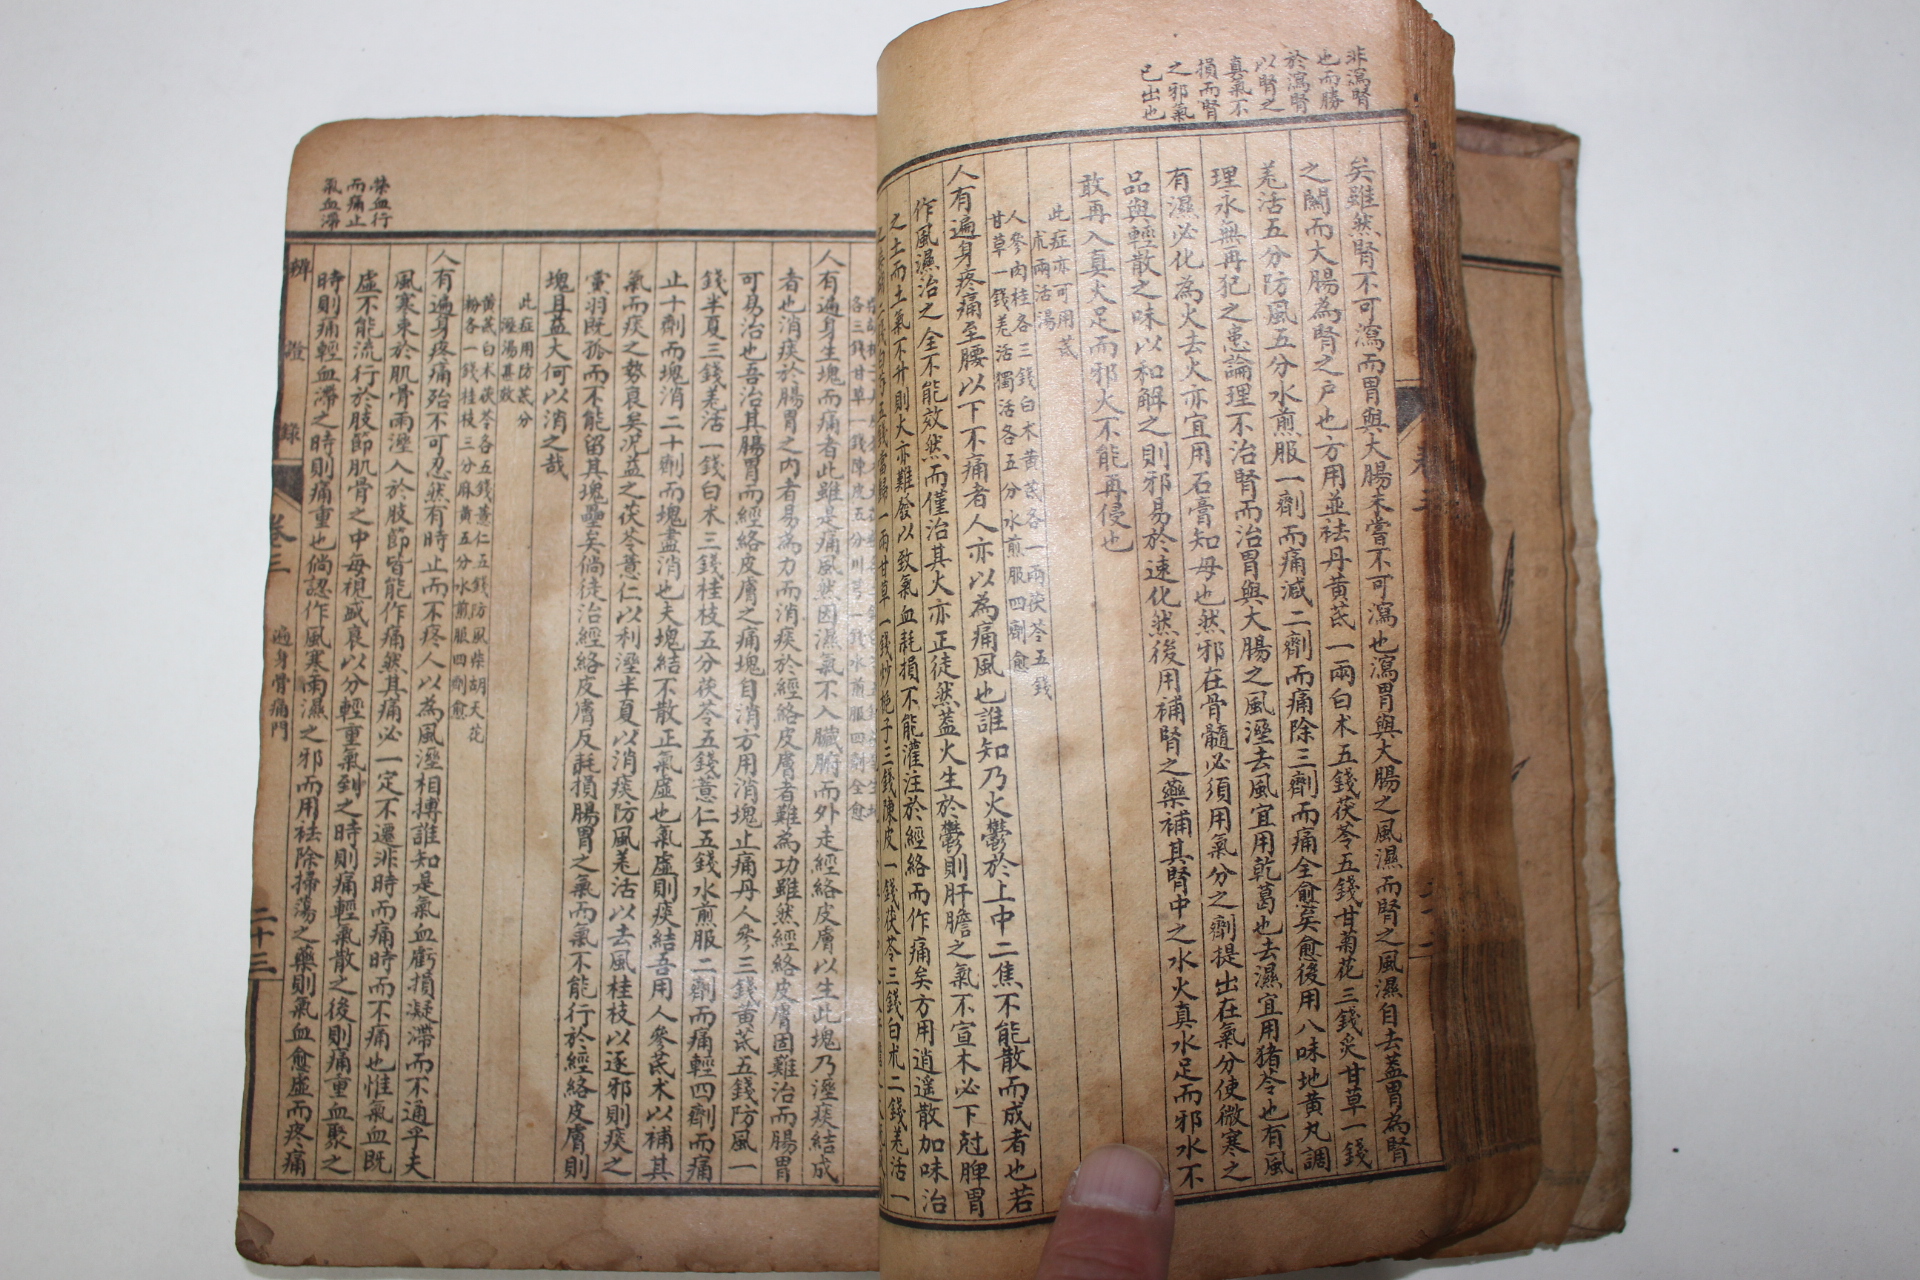 非瀉腎
也而勝
於瀉腎
以腎之
真氣不
損而腎
之邪氣
已出也
矣雖然腎不可瀉而胃與大腸未嘗不可瀉也瀉胃與大腸之風濕而腎之風濕自去蓋胃為腎
之關而大腸為腎之戶也方用並祛丹黃茋一兩白朮五錢茯苓五錢甘菊花三錢炙甘草一錢
羌活五分防風五分水煎服一劑而痛減二劑而痛除三劑而痛全愈矣愈後用八味地黃丸調
理永無再犯之患論理不治腎而治胃與大腸之風溼去風宜用乾葛也去濕宜用猪苓也有風
有濕必化為火去火亦宜用石膏知母也然邪在骨髓必須用氣分之劑提出在氣分使微寒之
品與輕散之味以和解之則邪易於速化然後用補腎之藥補其腎中之水火真水足而邪水不
敢再入真火足而邪火不能再侵也
此症亦可用茋
朮兩活湯
人參肉桂各三錢白朮黃茋各一兩茯苓五錢
甘草一錢羌活獨活各五分水煎服四劑愈
人有遍身疼痛至腰以下不痛者人亦以為痛風也誰知乃火鬱於上中二焦不能散而成者也若
作風濕治之全不能效然而僅治其火亦正徒然蓋火生於鬱則肝膽之氣不宣木必下尅脾胃
之土而土氣不升則大亦難發以致氣血耗損不能灌注於經絡而作痛矣方用逍遥散加味治
一兩甘草一錢炒梔子三錢陳皮一錢茯苓三錢白朮二錢羌活一
各三錢甘草一錢陳皮五分川芎一錢水煎服四劑全愈
人有遍身生塊而痛者此雖是痛風然因濕氣不入臟腑而外走經絡皮膚以生此塊乃溼痰結成
者也消痰於腸胃之內者易為力而消痰於經絡皮膚者難為功雖然經絡皮膚固難治而腸胃
可易治也吾治其腸胃而經絡皮膚之痛塊自消方用消塊止痛丹人參三錢黃茋五錢防風一
錢半夏三錢羌活一錢白朮三錢桂枝五分茯苓五錢薏仁五錢水煎服二劑而痛輕四劑而痛
止十劑而塊消二十劑而塊盡消也夫塊結不散正氣虛也氣虛則痰結吾用人參茋朮以補其
氣而痰之勢衰矣况益之茯苓薏仁以利溼半夏以消痰防風羌活以去風桂枝以逐邪則痰之
黨羽既孤而不能留其塊壘矣倘徒治經絡皮膚反耗損腸胃之氣而氣不能行於經絡皮膚則
塊且益大何以消之哉
此症用防茋分
溼湯甚效
黃茋白朮茯苓各五錢薏仁五錢防風柴胡天花
粉各一錢桂枝三分麻黃五分水煎服四劑愈
人有遍身疼痛殆不可忍然有時止而不疼人以為風溼相搏誰知是氣血虧損凝滯而不通乎夫
風寒束於肌骨雨溼入於肢節皆能作痛然其痛必一定不遷非時而痛時而不痛也惟氣血既
虛不能流行於肢節肌骨之中每視盛衰以分輕重氣到之時則痛輕氣散之後則痛重血聚之
時則痛輕血滯之時則痛重也倘認作風寒雨濕之邪而用祛除掃蕩之藥則氣血愈虛而疼痛
榮血行
而痛止
氣血滯
辨證錄
卷三
遍身骨痛門
二十三